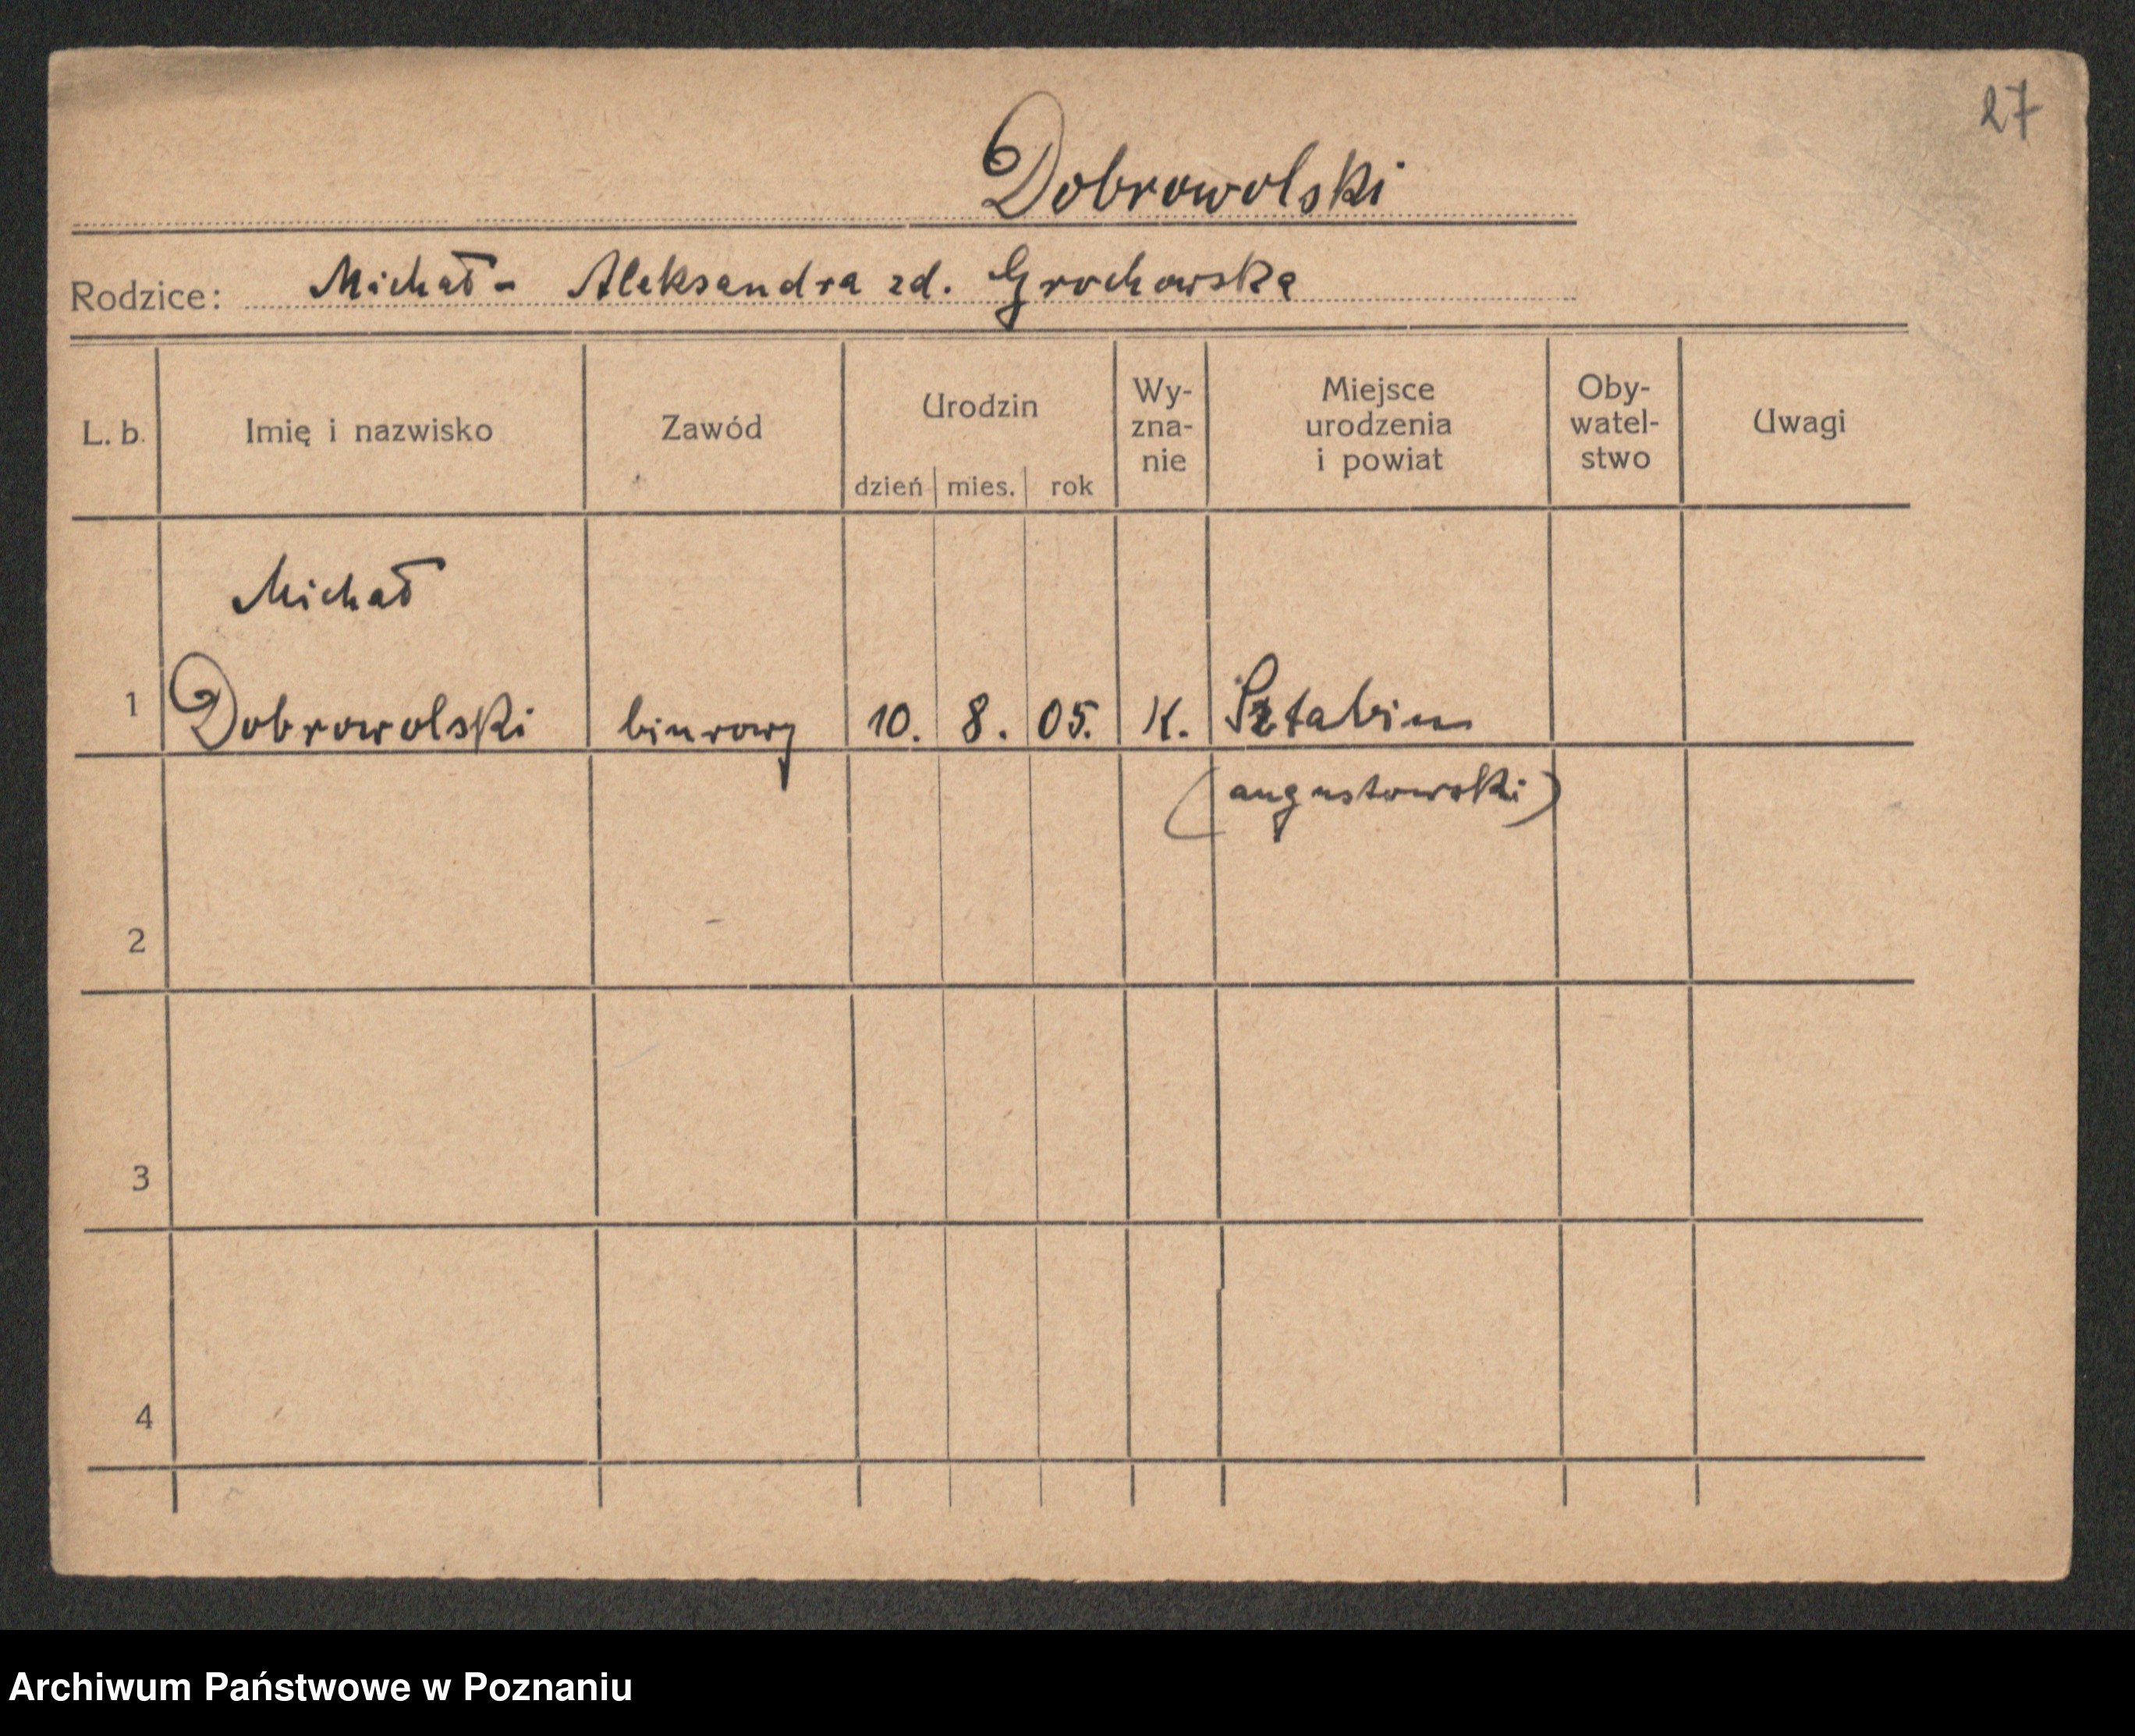 27
Dobrowolski
Rodzice: Michał - Aleksandra zd. Grochowska
L. b. Imię i nazwisko Zawód Urodzin dzień mies. rok Wy-zna-nie Miejsce urodzenia i powiat Oby-watel-stwo Uwagi
Michał
1 Dobrowolski biurowy 10. 8. 05. K. Sztabin
(augustowski)
2
3
4
Archiwum Państwowe w Poznaniu